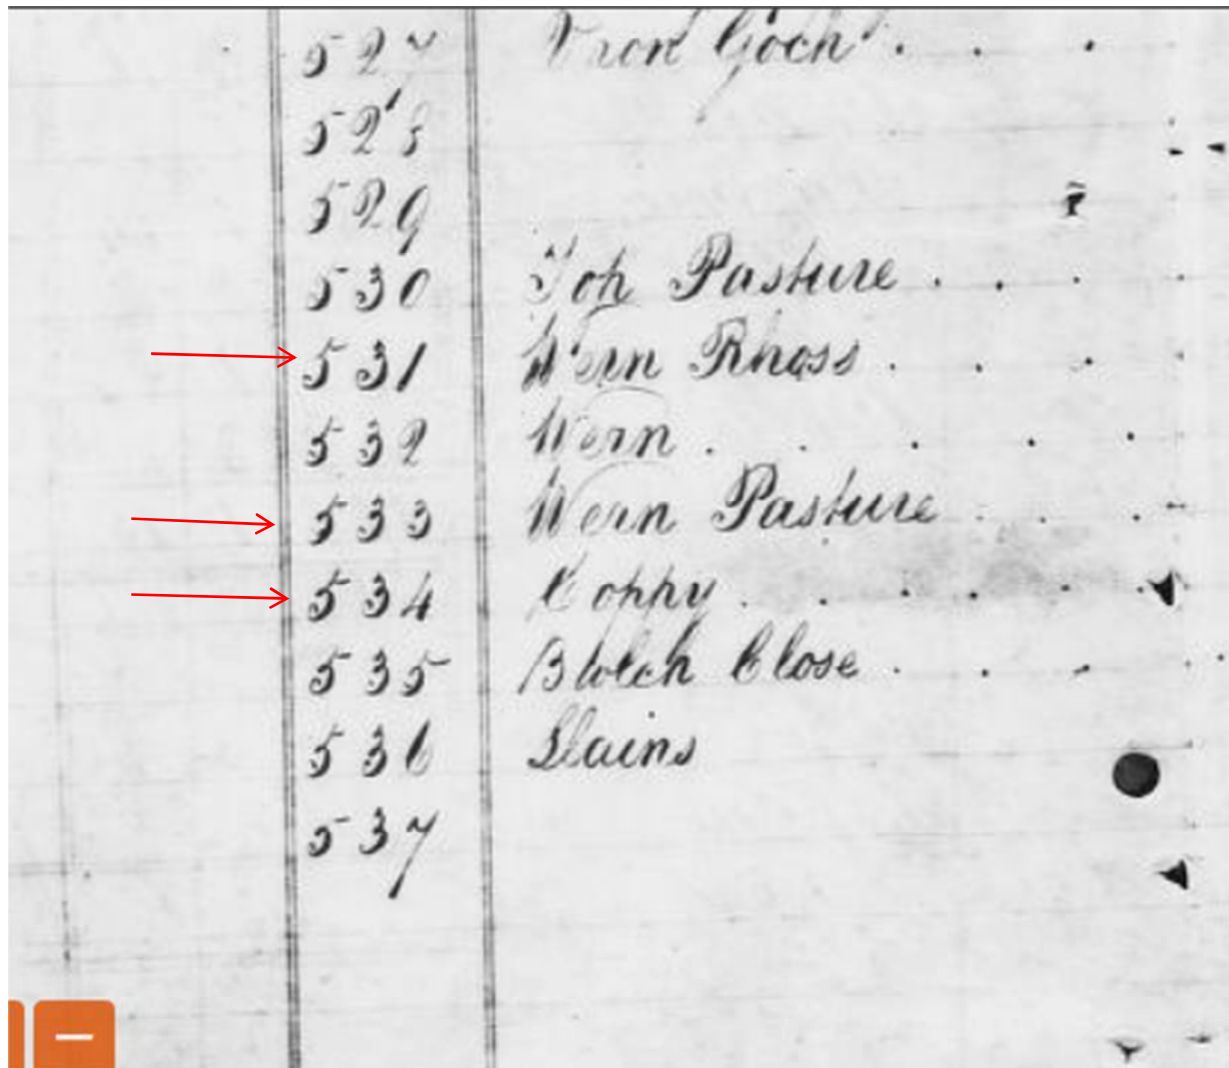 527 Vron Goch
528
529
530 Top Pasture
531 Wern Rhoss
532 Wern
533 Wern Pasture
534 Coppy
535 Bwlch Close
536 Llains
537